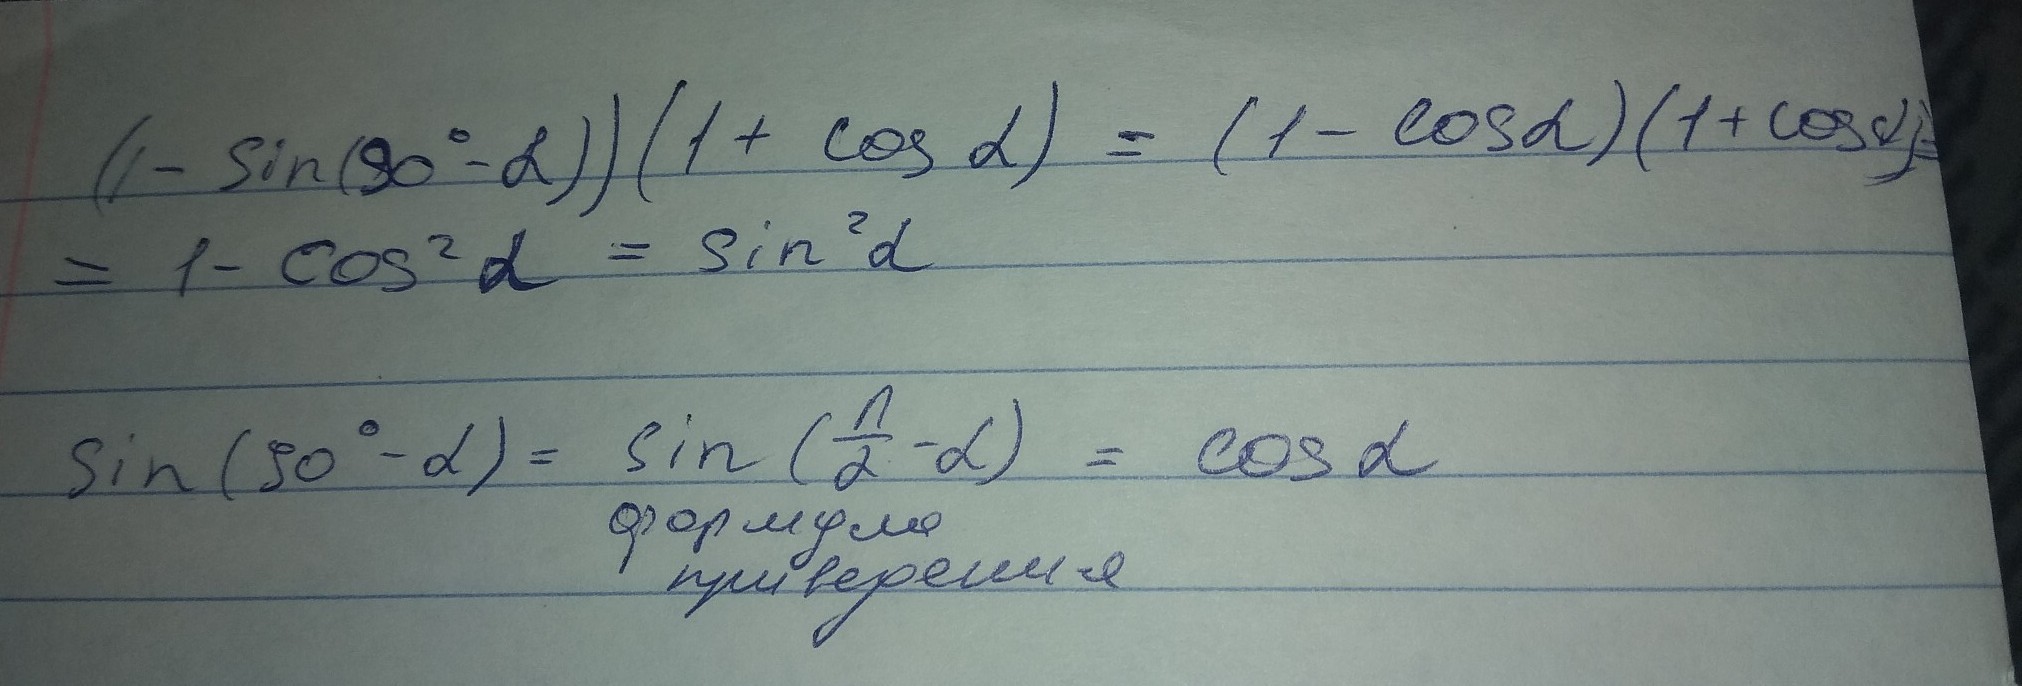 (1 - sin(90° - α))(1 + cos α) = (1 - cosα)(1 + cosα) =
= 1 - cos² α = sin² α
sin(90° - α) = sin(π/2 - α) = cos α
формула
приведения